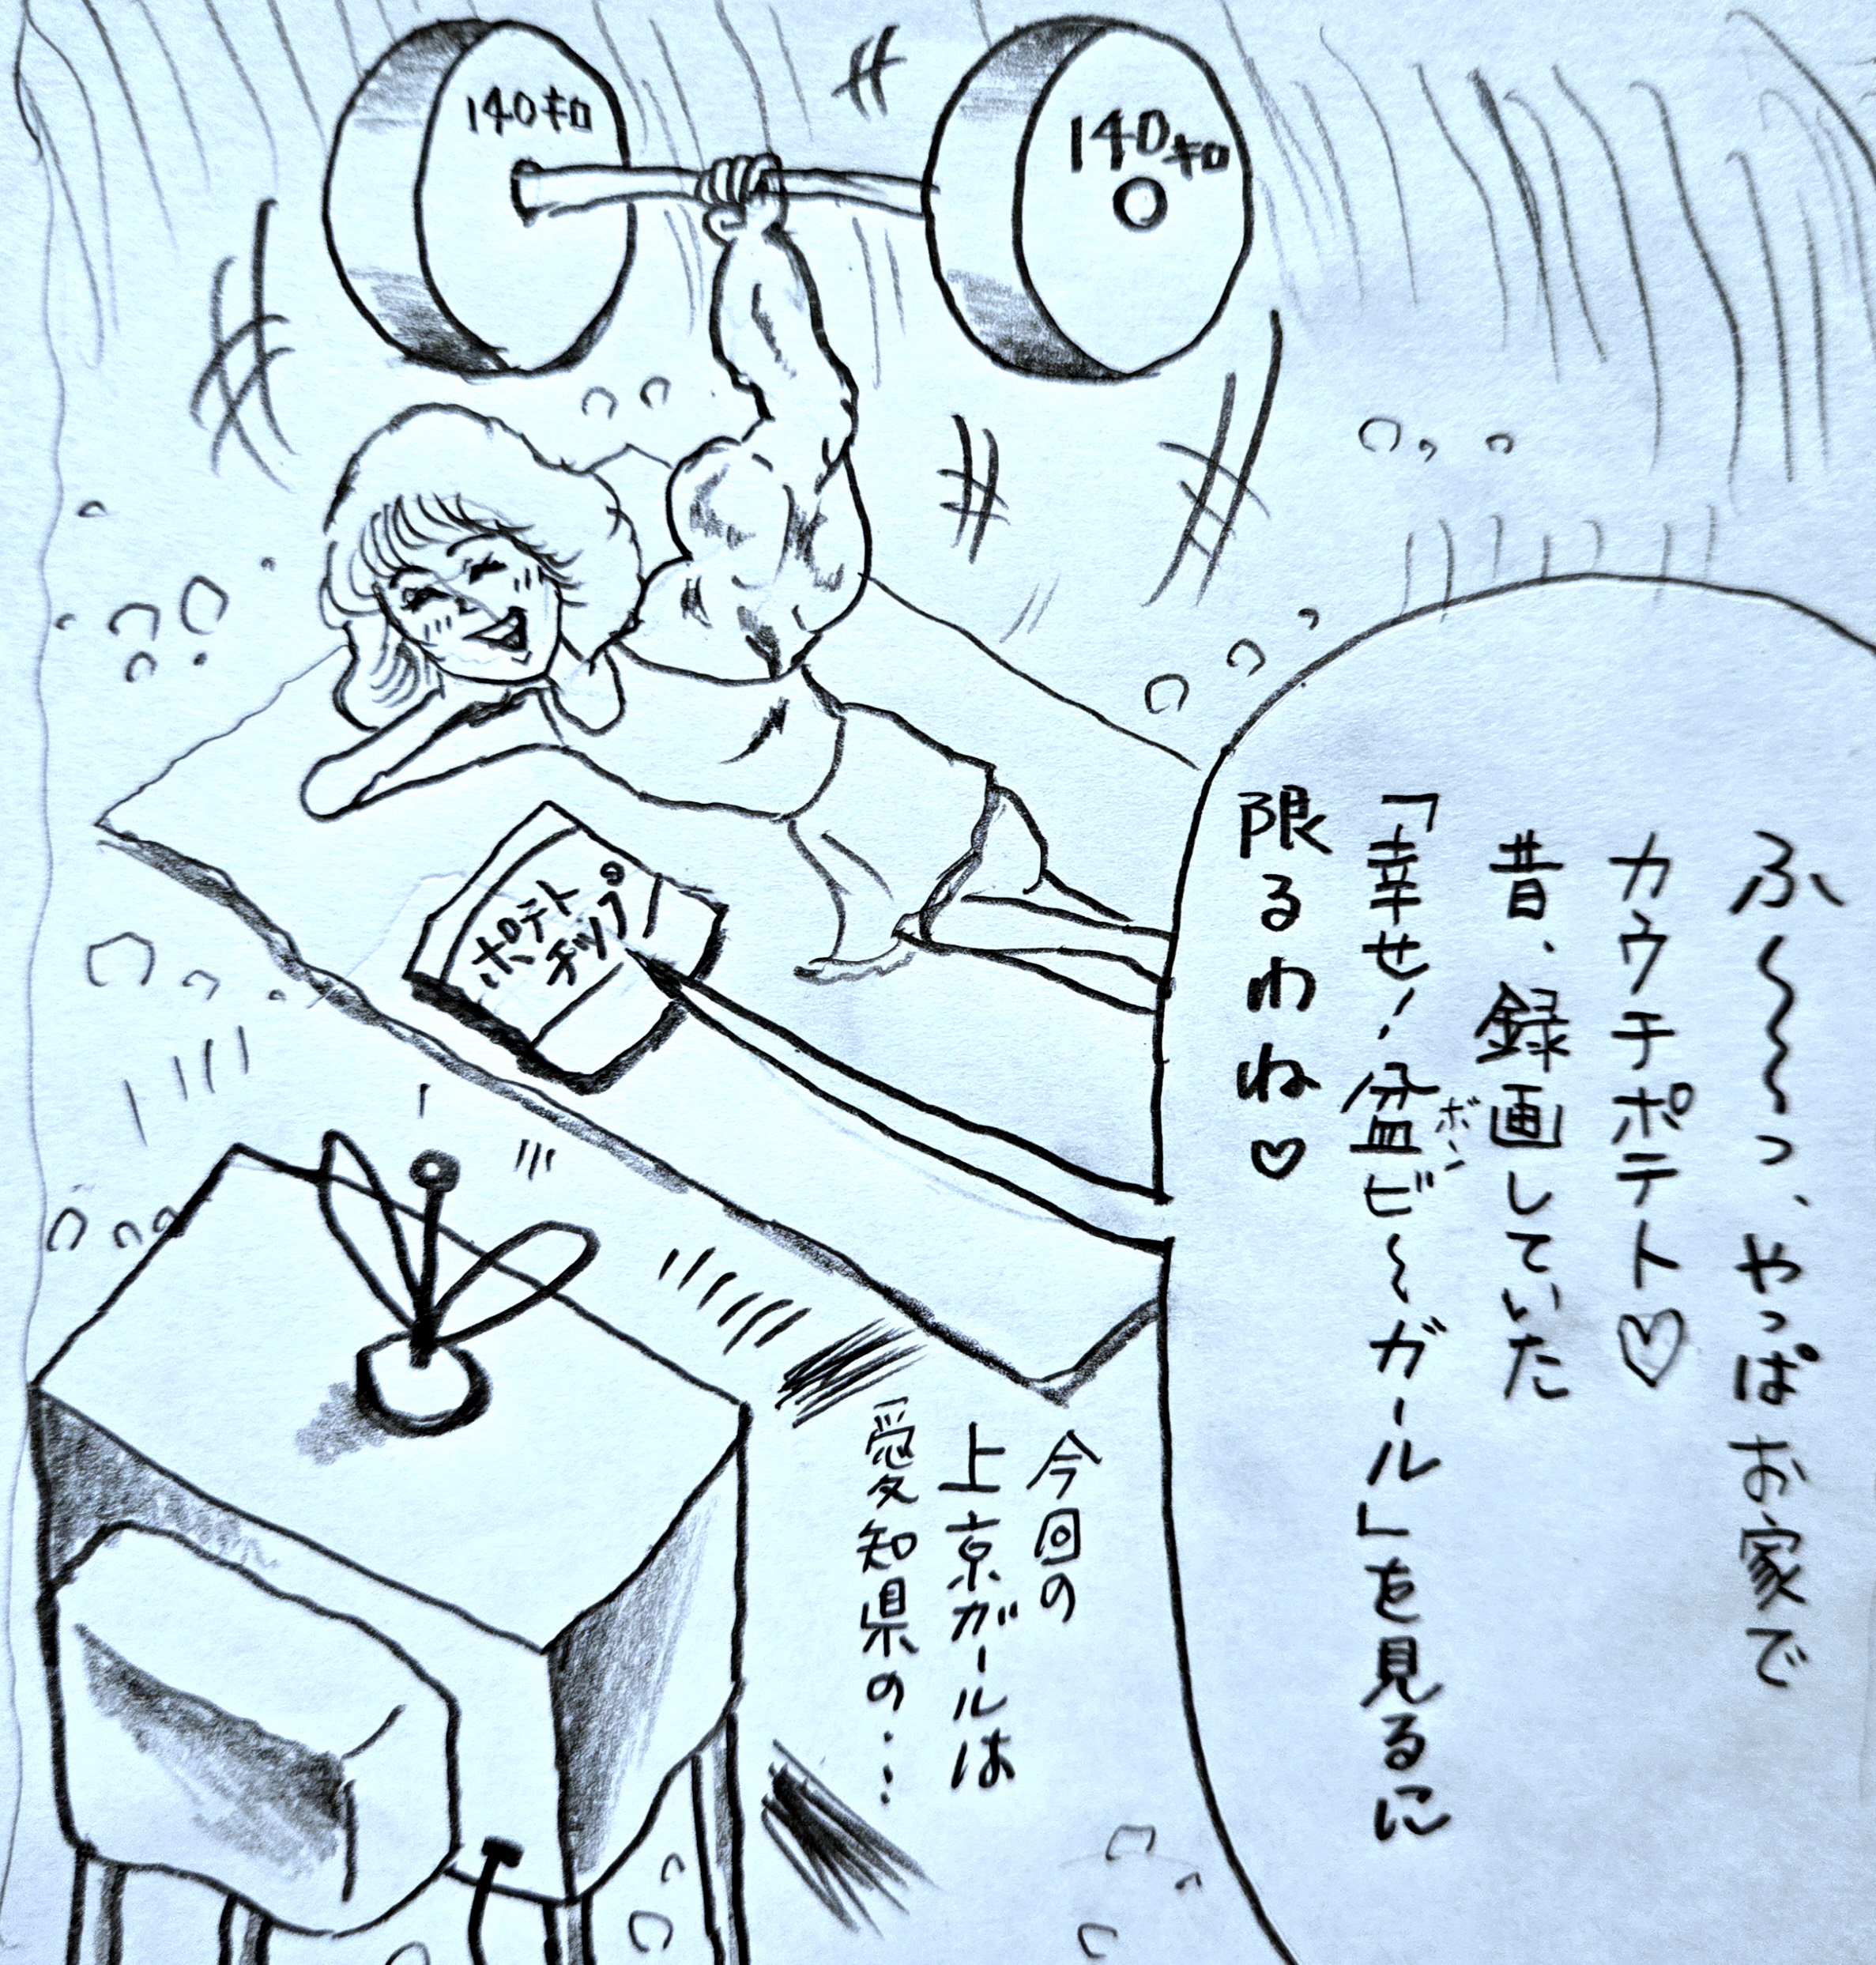 140キロ
140キロ
ふ〜〜〜っ、やっぱお家で
カウチポテト♡
昔、録画していた
「幸せ!盆ビ〜ガール」を見るに
ボン
限るわね♡
ポテト
チップ
今回の
上京ガールは
愛知県の・・・